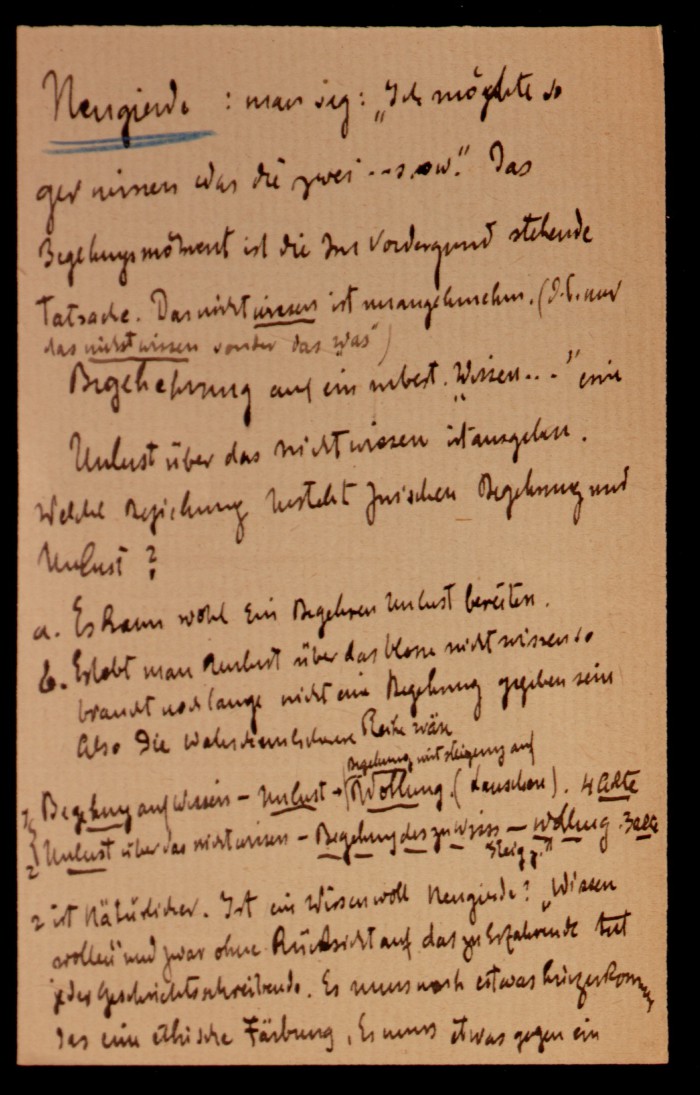 Neugierde : man sag: „Ich möchte so
ger wissen was die zwei --s.ow." Das
Begehungsmoment ist die Ins Vordergrund stehende
Tatsache. Das nicht wissen ist unangenehm. (D.h. nur
das nicht wissen sonder das „was")
Begehehrung auf ein unbest. „Wissen..-" eine
Unlust über das nicht wissen ist
Welche Beziehung besteht zwischen Begehrung und
Unlust ?
a. Es kann wohl Ein Begehren Unlust bereiten.
b. Erlebt man Unlust über das blosse nicht wissen so
braucht noch lange nicht eine Begehrung gegeben sein
Also Die Reihe wäre
Begehrung mit steigerung auf
1) Begehung auf wissen – Unlust → (Wollung. (Lauschen). 4 Akte
2) Unlust über das nicht wissen – Begehung des zu wiss – wollung. 3 akte
Steig z. "
2 ist Natürlicher. Ist ein Wissen woll Neugierde? „Wissen
wollen" und zwar ohne Rücksicht auf das zu Erfahrende tut
jeder Geschichtsschreibende. Es muss noch etwas hinzukommen
das eine ethische Färbung, Es muss etwas gegen ein